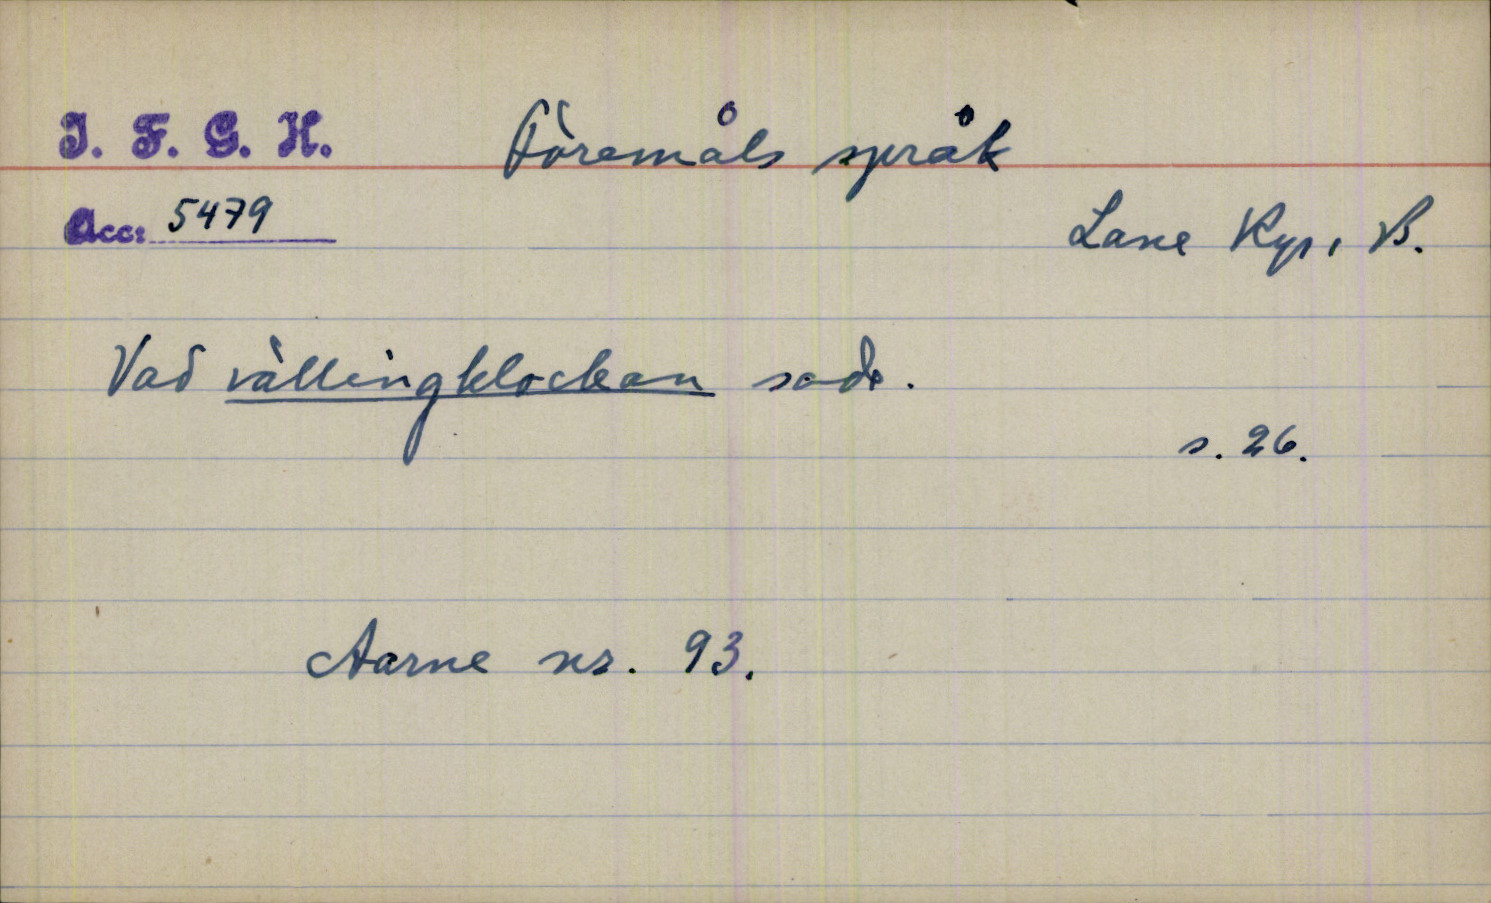 I. F. G. H.
Föremåls språk
Acc: 5479
Lane Ryr, B.
Vad vällingklockan sade.
s. 26.
Aarne nr. 93.